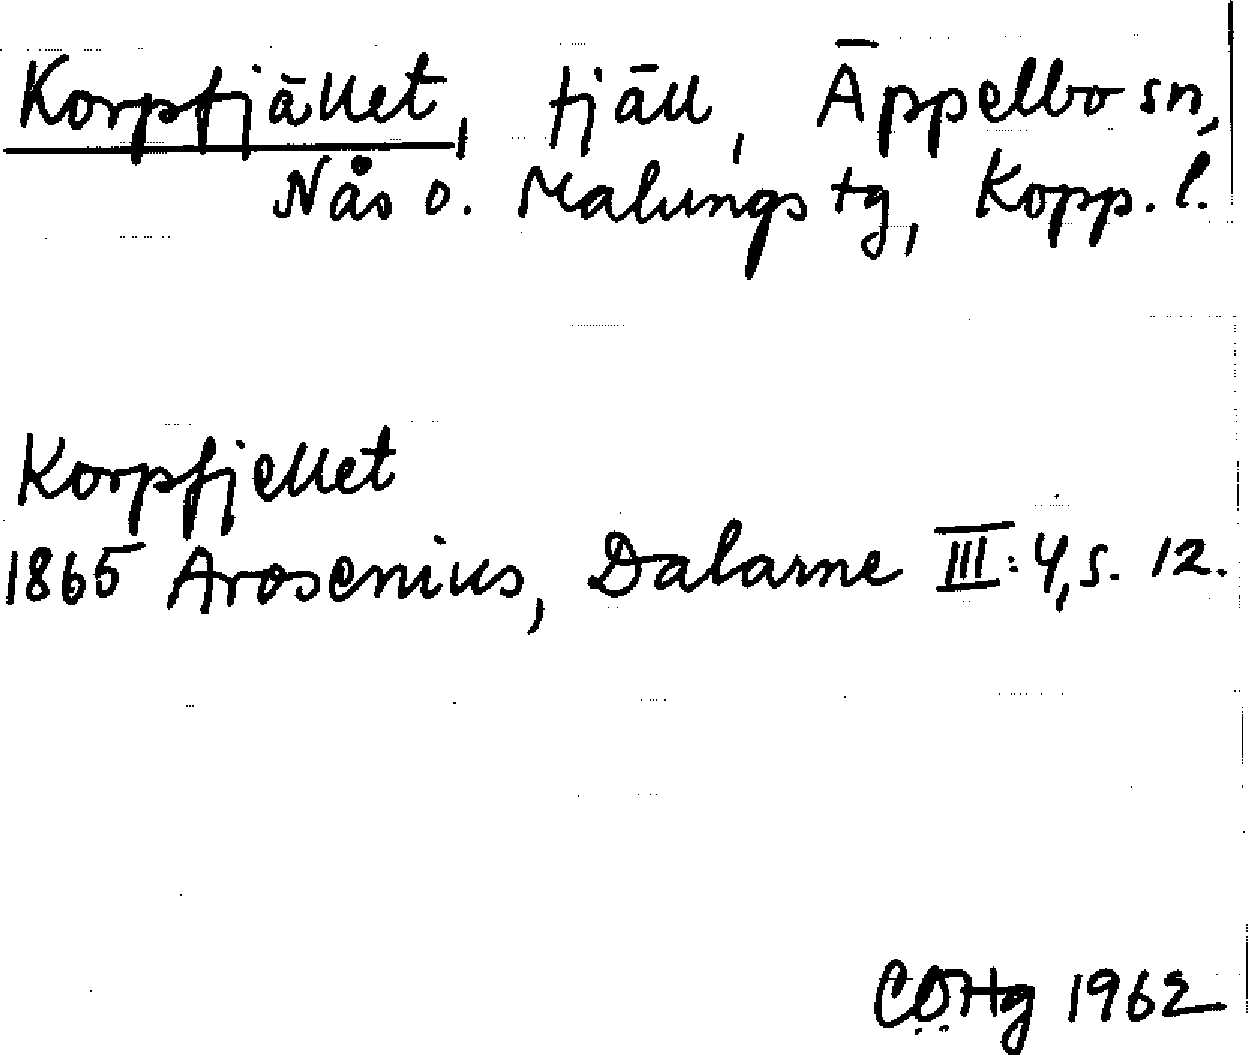 Korpfjället, fjäll, Äppelbo sn,
Nås o. Malungs tg, Kopp. l.
Korpfjellet
1865 Arosenius, Dalarne III: 4, s. 12.
1962